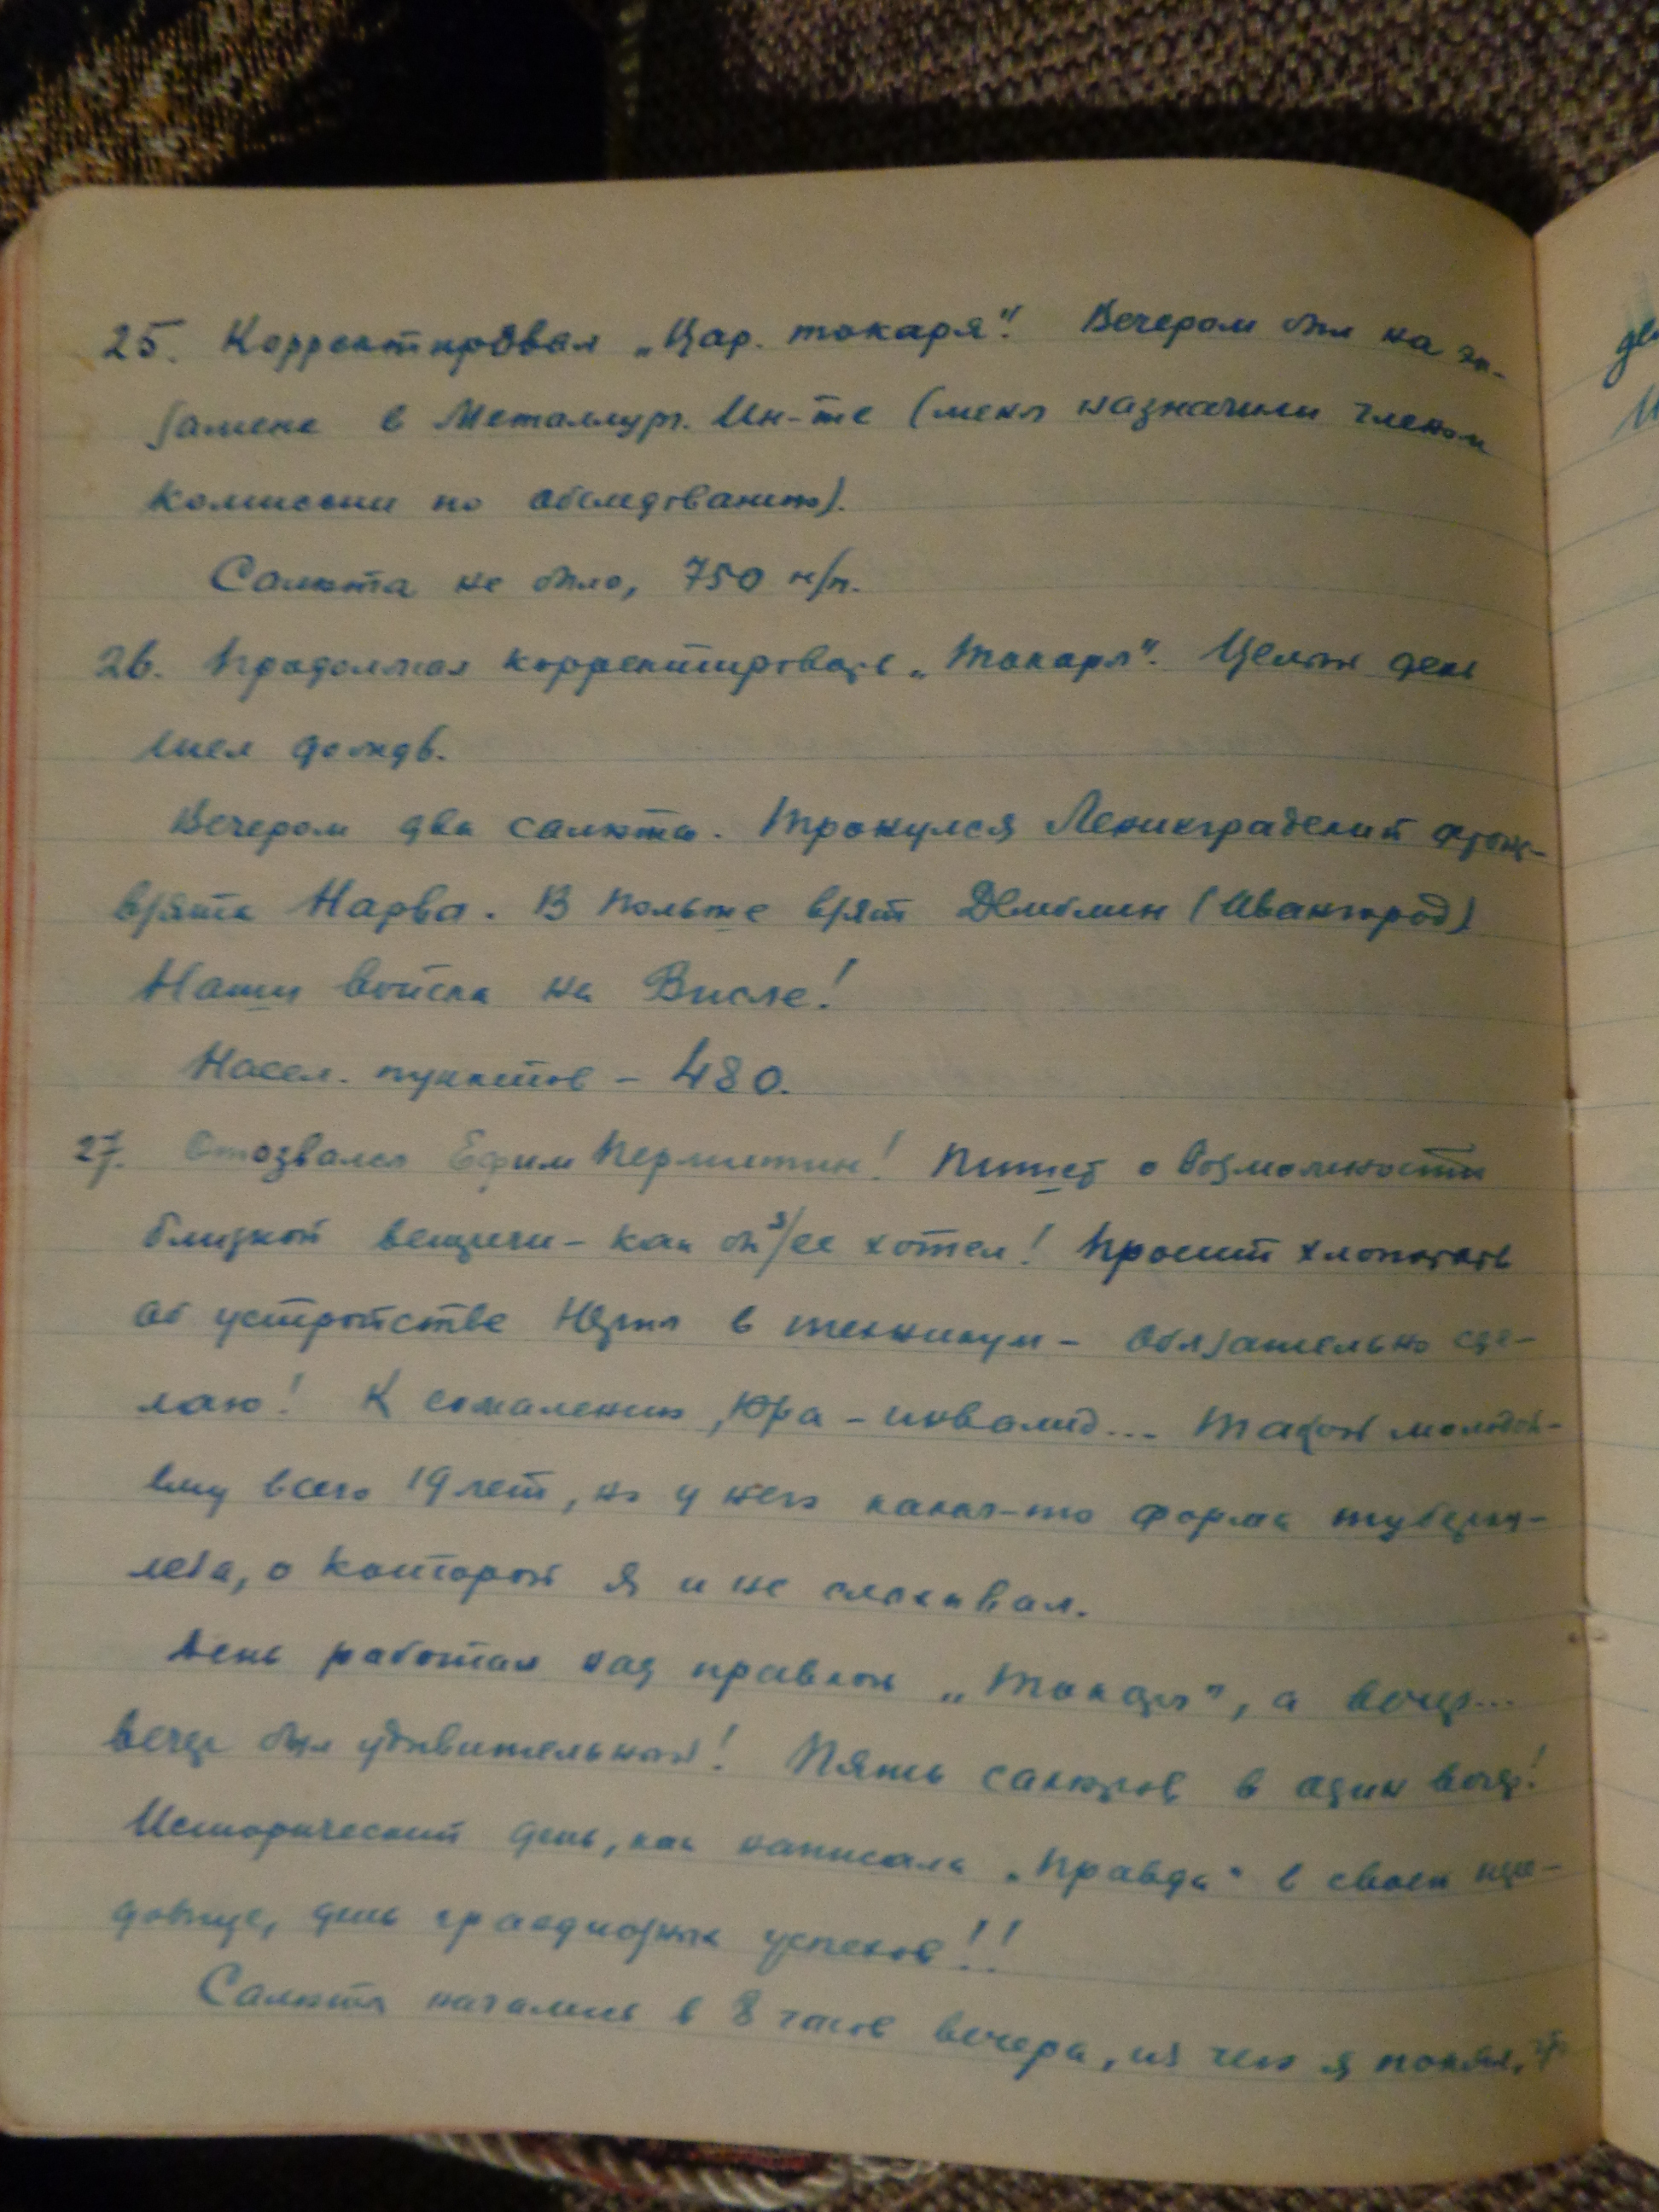 25. Корректировал „Цар. токаря". Вечером был на эк-
замене в Металлург. Ин-те (меня назначили членом
комиссии по обследованию).
Салюта не было, 750 н/п.
26. Продолжал корректировать „Токаря". Целый день
шел дождь.
Вечером два салюта. Тронулся Ленинградский фронт-
взята Нарва. В Польше взят Демблин (Ивангород)
Наши войска на Висле!
Насел. пунктов – 480.
27. Отозвался Ефим Пермитин! Пишет о возможности
близкой встречи – как бы я/ее хотел! Просит хлопотать
об устройстве Юрия в техникум – обязательно сде-
лаю! К сожалению, Юра – инвалид... Такой молодой-
ему всего 19 лет, но у него какая-то форма туберку-
леза, о которой я и не слыхивал.
День работал над правкой „Токаря", а вечер...
вечер был удивительный! Пять салютов в один вечер!
Исторический день, как написала „Правда" в своей пере-
довице, день грандиозных успехов!!
Салюты начались в 8 часов вечера, из чего я понял, что